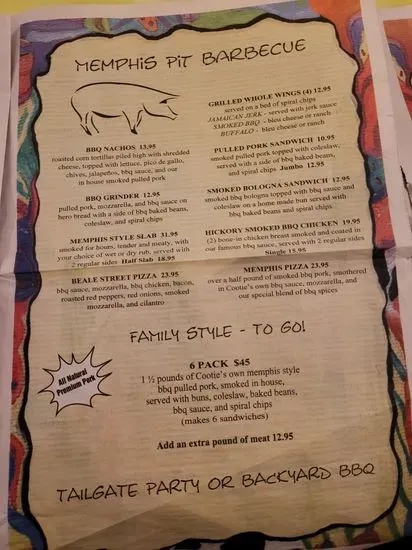 MEMPHIS PIT BARBECUE
BBQ NACHOS 13.95
roasted corn tortillas piled high with shredded
cheese, topped with lettuce, pico de gallo,
chives, jalapeños, bbq sauce, and our
in house smoked pulled pork
BBQ GRINDER 12.95
pulled pork, mozzarella, and bbq sauce on
hero bread with a side of bbq baked beans,
coleslaw, and spiral chips
MEMPHIS STYLE SLAB 31.95
smoked for hours, tender and meaty, with
your choice of wet or dry rub, served with
2 regular sides Half Slab 18.95
BEALE STREET PIZZA 23.95
bbq sauce, mozzarella, bbq chicken, bacon,
roasted red peppers, red onions, smoked
mozzarella, and cilantro
GRILLED WHOLE WINGS (4) 12.95
served on a bed of spiral chips
JAMAICAN JERK - served with jerk sauce
SMOKED BBQ - bleu cheese or ranch
BUFFALO - bleu cheese or ranch
PULLED PORK SANDWICH 10.95
smoked pulled pork topped with coleslaw,
served with a side of bbq baked beans,
and spiral chips Jumbo 12.95
SMOKED BOLOGNA SANDWICH 12.95
smoked bbq bologna topped with bbq sauce and
coleslaw on a home made bun served with
bbq baked beans and spiral chips
HICKORY SMOKED BBQ CHICKEN 19.95
(2) bone-in chicken breast smoked and coated in
our famous bbq sauce, served with 2 regular sides
Single 15.95
MEMPHIS PIZZA 23.95
over a half pound of smoked bbq pork, smothered
in Cootie's own bbq sauce, mozzarella, and
our special blend of bbq spices
FAMILY STYLE - TO GO!
All Natural
Premium Pork
6 PACK $45
1 ½ pounds of Cootie's own memphis style
bbq pulled pork, smoked in house,
served with buns, coleslaw, baked beans,
bbq sauce, and spiral chips
(makes 6 sandwiches)
Add an extra pound of meat 12.95
TAILGATE PARTY OR BACKYARD BBQ